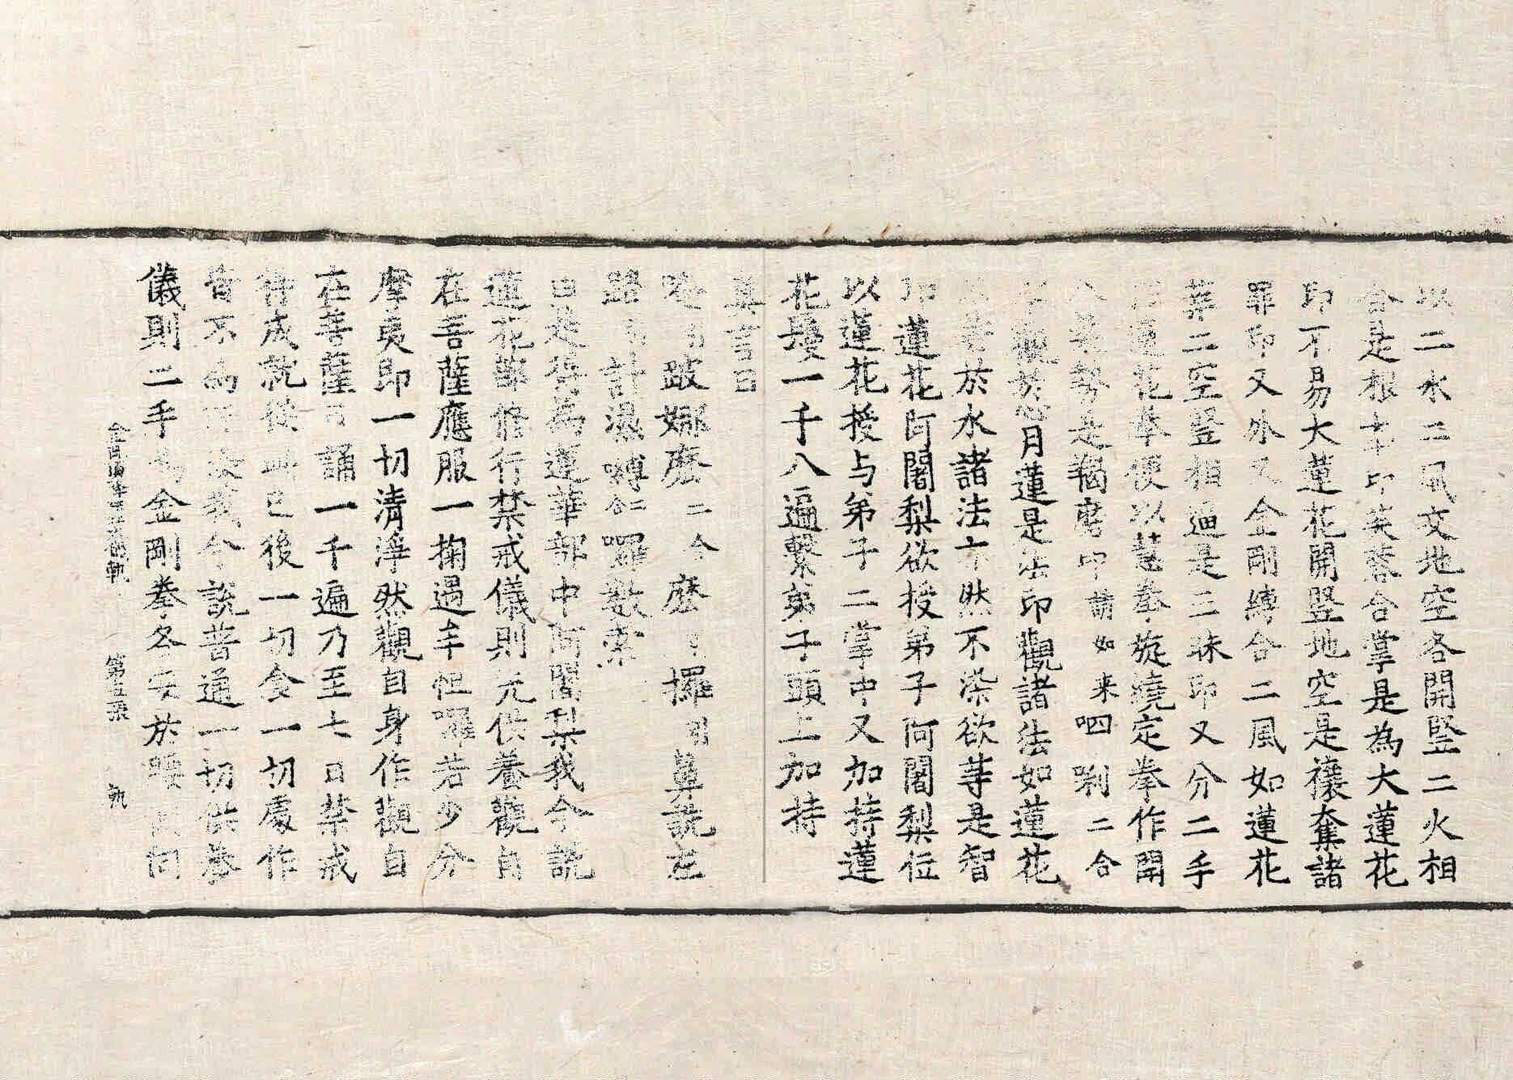 以二水二風文地空各開竪二火相
合是根本印芙蓉合掌是為大蓮花
印不易大蓮花開竪地空是禳奪諸
罪印又外叉金剛縛合二風如蓮花
葉二空竪相逼是三昧印又分二手
作蓮花拳便以慧拳旋繞定拳作開
蓮勢是羯磨印請如来呬唎二合
觀於心月蓮是法印觀諸法如蓮花
於水諸法亦然不染欲等是智
印蓮花阿闍梨欲授弟子阿闍梨位
以蓮花授与弟子二掌中又加持蓮
花鬘一千八遍繫弟子頭上加持
真言曰
唵引跛娜麽二合麽攞引鼻詵左
路計濕嚩二合囉數索
曰是名為蓮華部中阿闍梨我今說
蓮花部修行禁戒儀則先供養觀自
在菩薩應服一掬遏半怛囉若少分
摩夷即一切清淨然觀自身作觀自
在菩薩誦一千遍乃至七日禁戒
得成就從此已後一切食一切處作
皆不為我今說普通一切供養
儀則二手為金剛拳各安於腰側向
第五張 軌